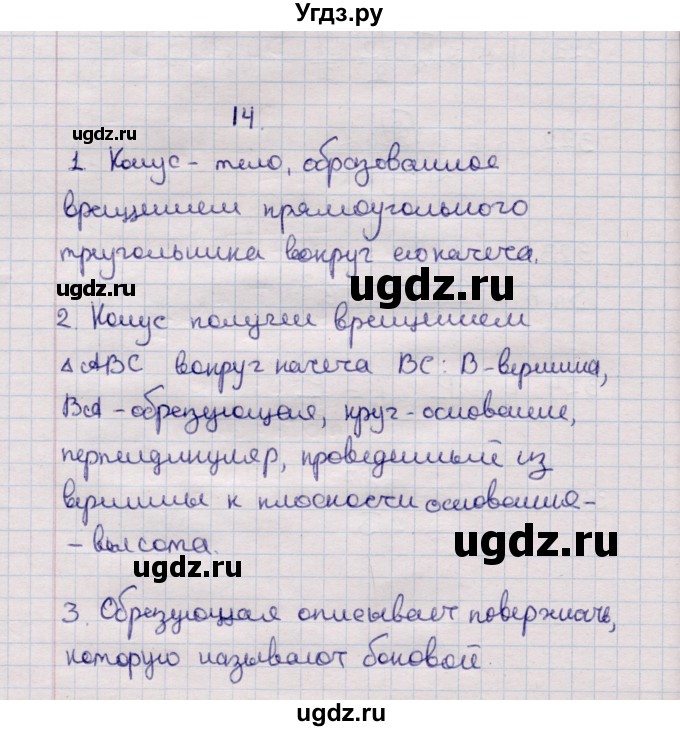 Угдз.ру
14.
ugdz.ru
1. Конус - тело, образованное
вращением прямоугольного
треугольника вокруг его катета.
ugdz.ru
ugdz.ru
2. Конус получен вращением
△ABC вокруг катета BC: B - вершина,
BA - образующая, круг - основание,
перпендикуляр, проведенный из
вершины к плоскости основания -
- высота.
ugdz.ru
ugdz.ru
3. Образующая описывает поверхность,
которую называют боковой.
ugdz.ru